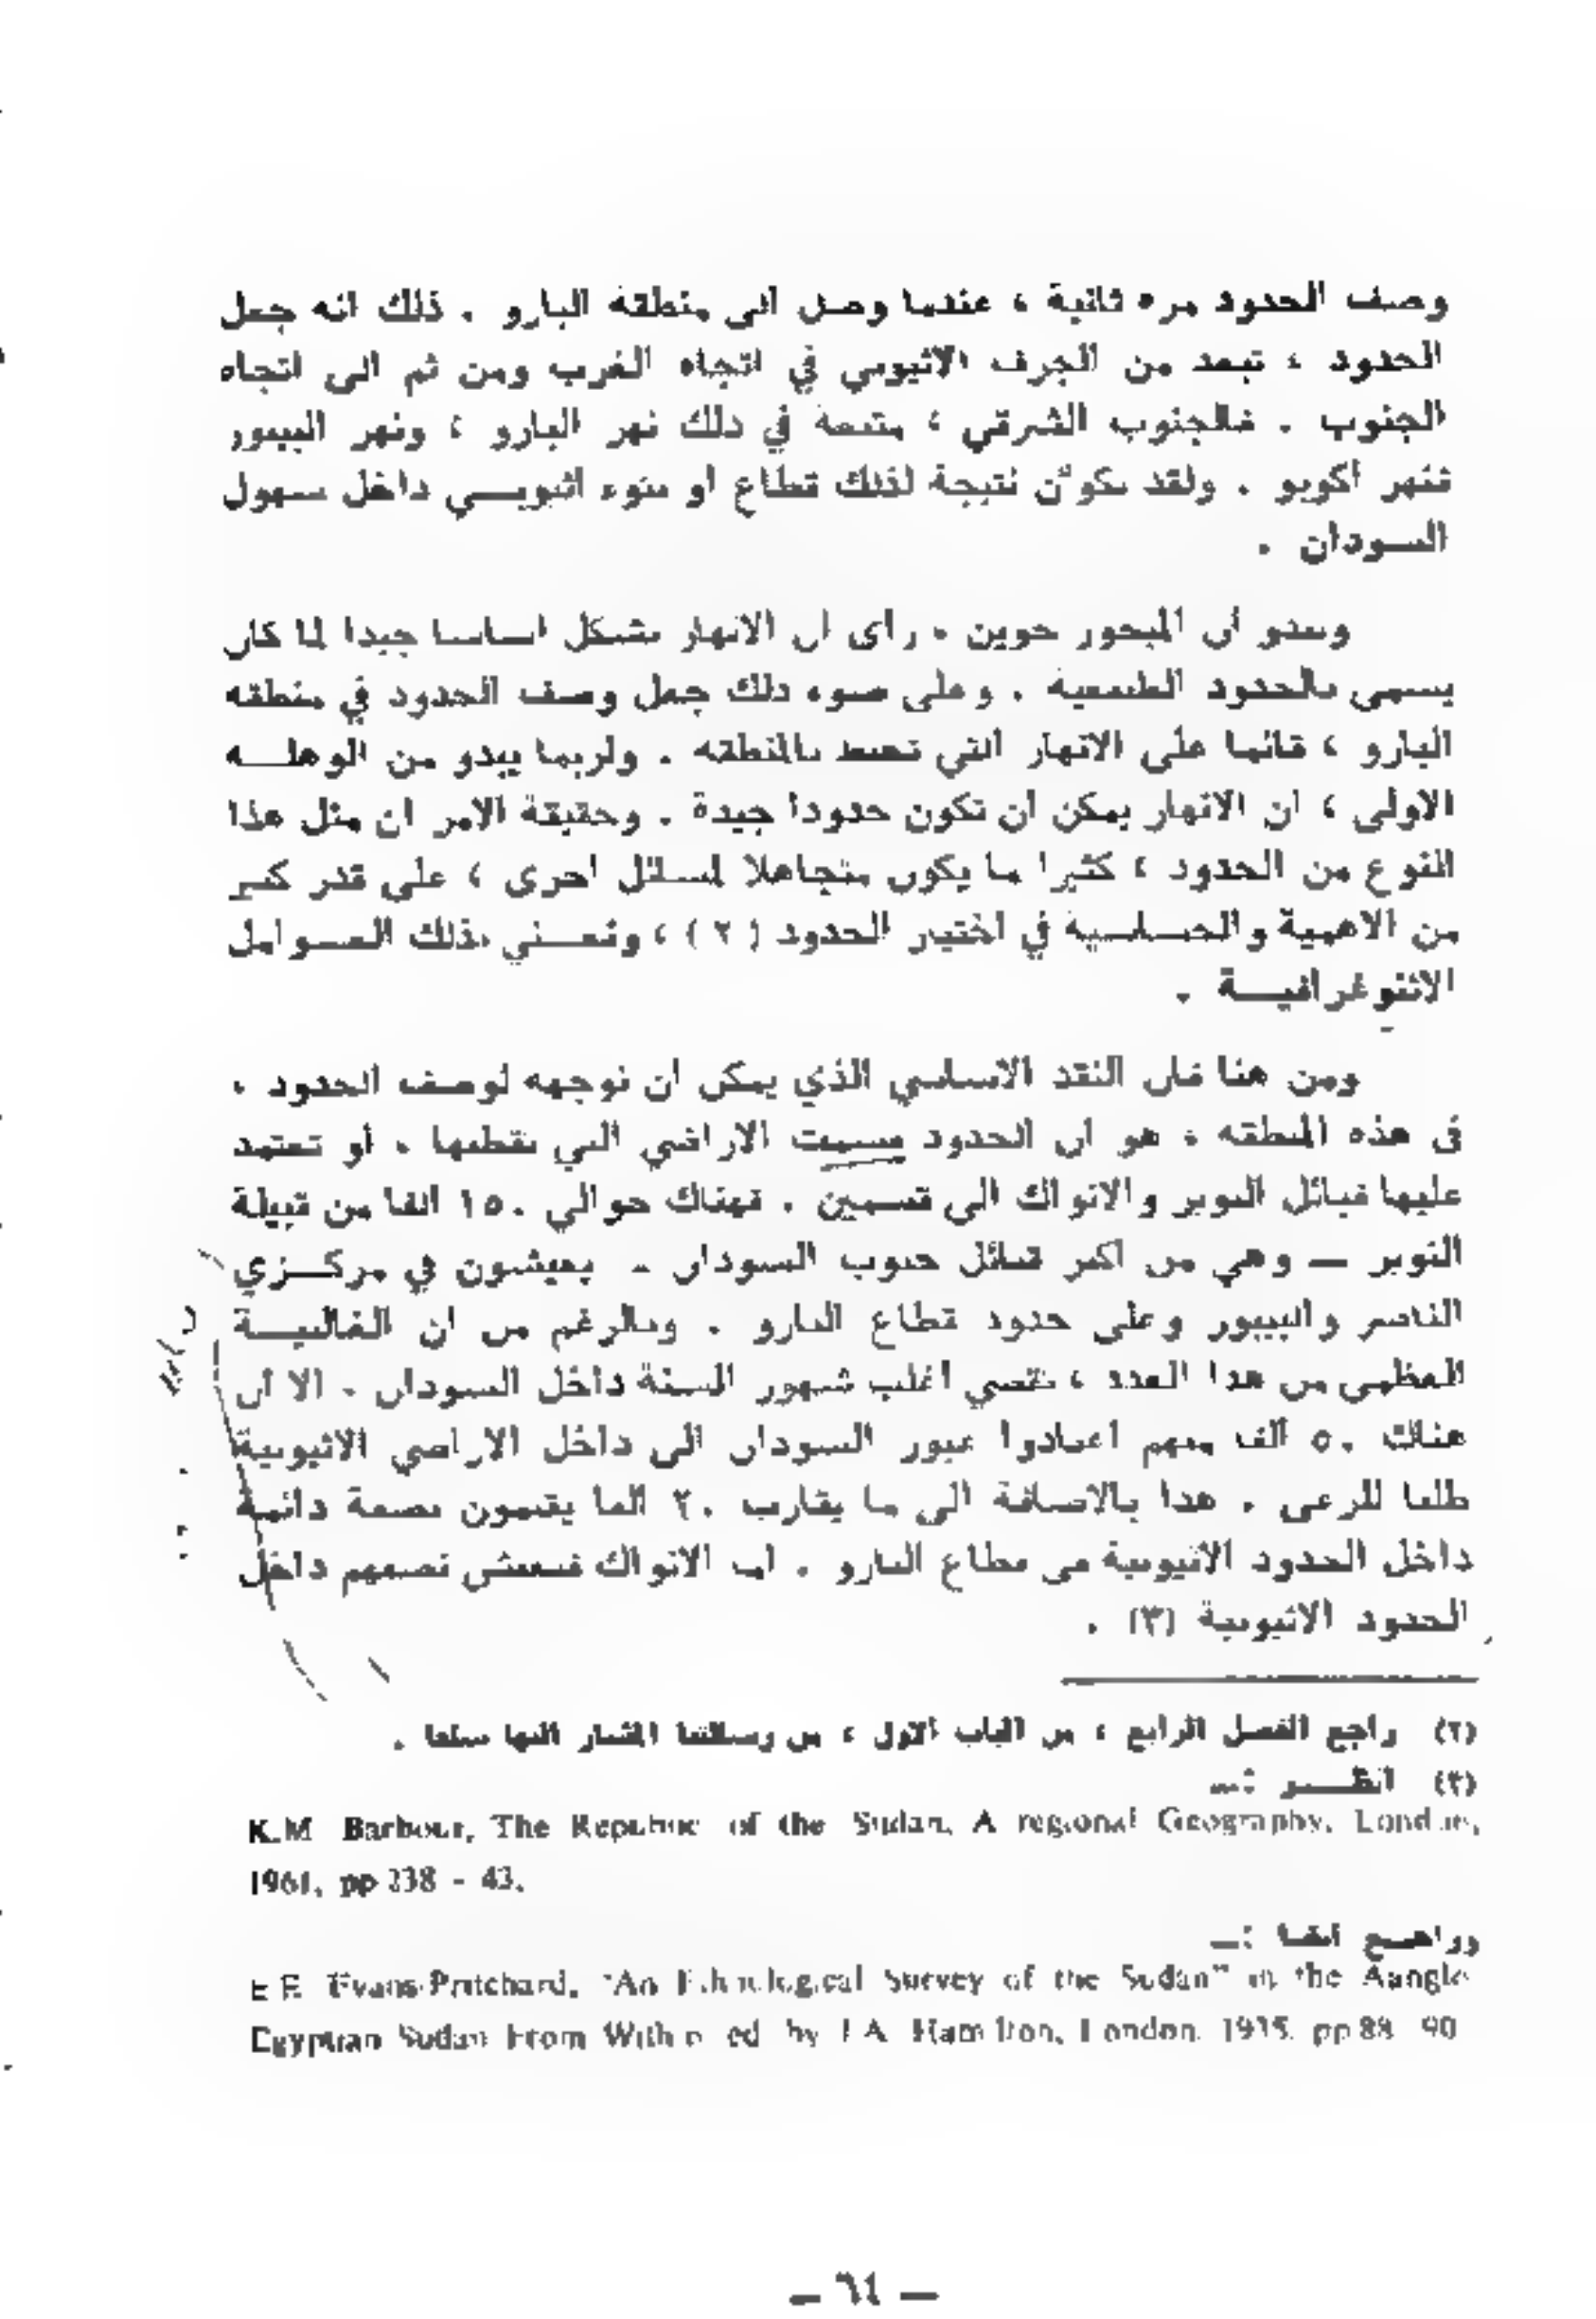 وصف الحدود مره ثانية ، عندما وصل الى منطقة البارو . ذلك انه جعل
الحدود ، تبعد من الجرف الاثيوبي في اتجاه الغرب ومن ثم الى اتجاه
الجنوب . فالجنوب الشرقي ، متبعة في ذلك نهر البارو ، ونهر البيبور
فنهر أكوبو . ولقد تكوّن نتيجة لذلك قطاع او نتوء اثيوبـــي داخل سهول
الســودان .
ويبدو أن الميجور جوين ، رأى ان الانهار تشكل اساسا جيدا لما كان
يسمى بالحدود الطبيعية . وعلى ضوء ذلك جعل وصف الحدود في منطقة
البارو ، قائما على الانهار التي تحيط بالمنطقه . ولربما يبدو من الوهلــة
الاولى ، ان الانهار يمكن ان تكون حدودا جيدة . وحقيقة الامر ان مثل هذا
النوع من الحدود ، كثيرا ما يكون متجاهلا لمسائل اخرى ، على قدر كبير
من الاهمية والحســاسية في اختيار الحدود (٢) ، ونعــني بذلك العــوامل
الاثنوغرافيــة .
ومن هنا فان النقد الاساسي الذي يمكن ان نوجهه لوصف الحدود ،
في هذه المنطقه ، هو ان الحدود قسمت الاراضي التي تقطنها ، او تعتمد
عليها قبائل النوير والانواك الى قسمين . فهناك حوالي ١٥٠ الفا من قبيلة
النوير — وهي من اكبر قبائل جنوب السودان - يعيشون في مركــزي
الناصر والبيبور وعلى حدود قطاع البارو . وبالرغم من ان الغالبيــة
العظمى من هذا العدد ، تقضي اغلب شهور السنة داخل السودان ، الا ان
هناك ٥٠ ألفا منهم اعتادوا عبور السودان الى داخل الاراضي الاثيوبية
طلبا للرعى . هذا بالاضافة الى ما يقارب ٢٠ الفا يقيمون بصفة دائمة
داخل الحدود الاثيوبية في قطاع البارو . اما الانواك فيعيش نصفهم داخل
الحدود الاثيوبية (٣) .
(٢) راجع الفصل الرابع ، من الباب الاول ، من رسالتنا المشار اليها سلفا .
(٣) انظـــر :ــ
K.M. Barbour, The Republic of the Sudan, A regional Geography, London,
1961, pp 238 - 43.
وراجــع ايضا :ــ
E.E. Evans-Pritchard, "An Ethnological Survey of the Sudan" in the Aanglo
Egyptian Sudan From Within ed. by J.A. Hamilton, London. 1935. pp 88 - 90
— ٦٤ —